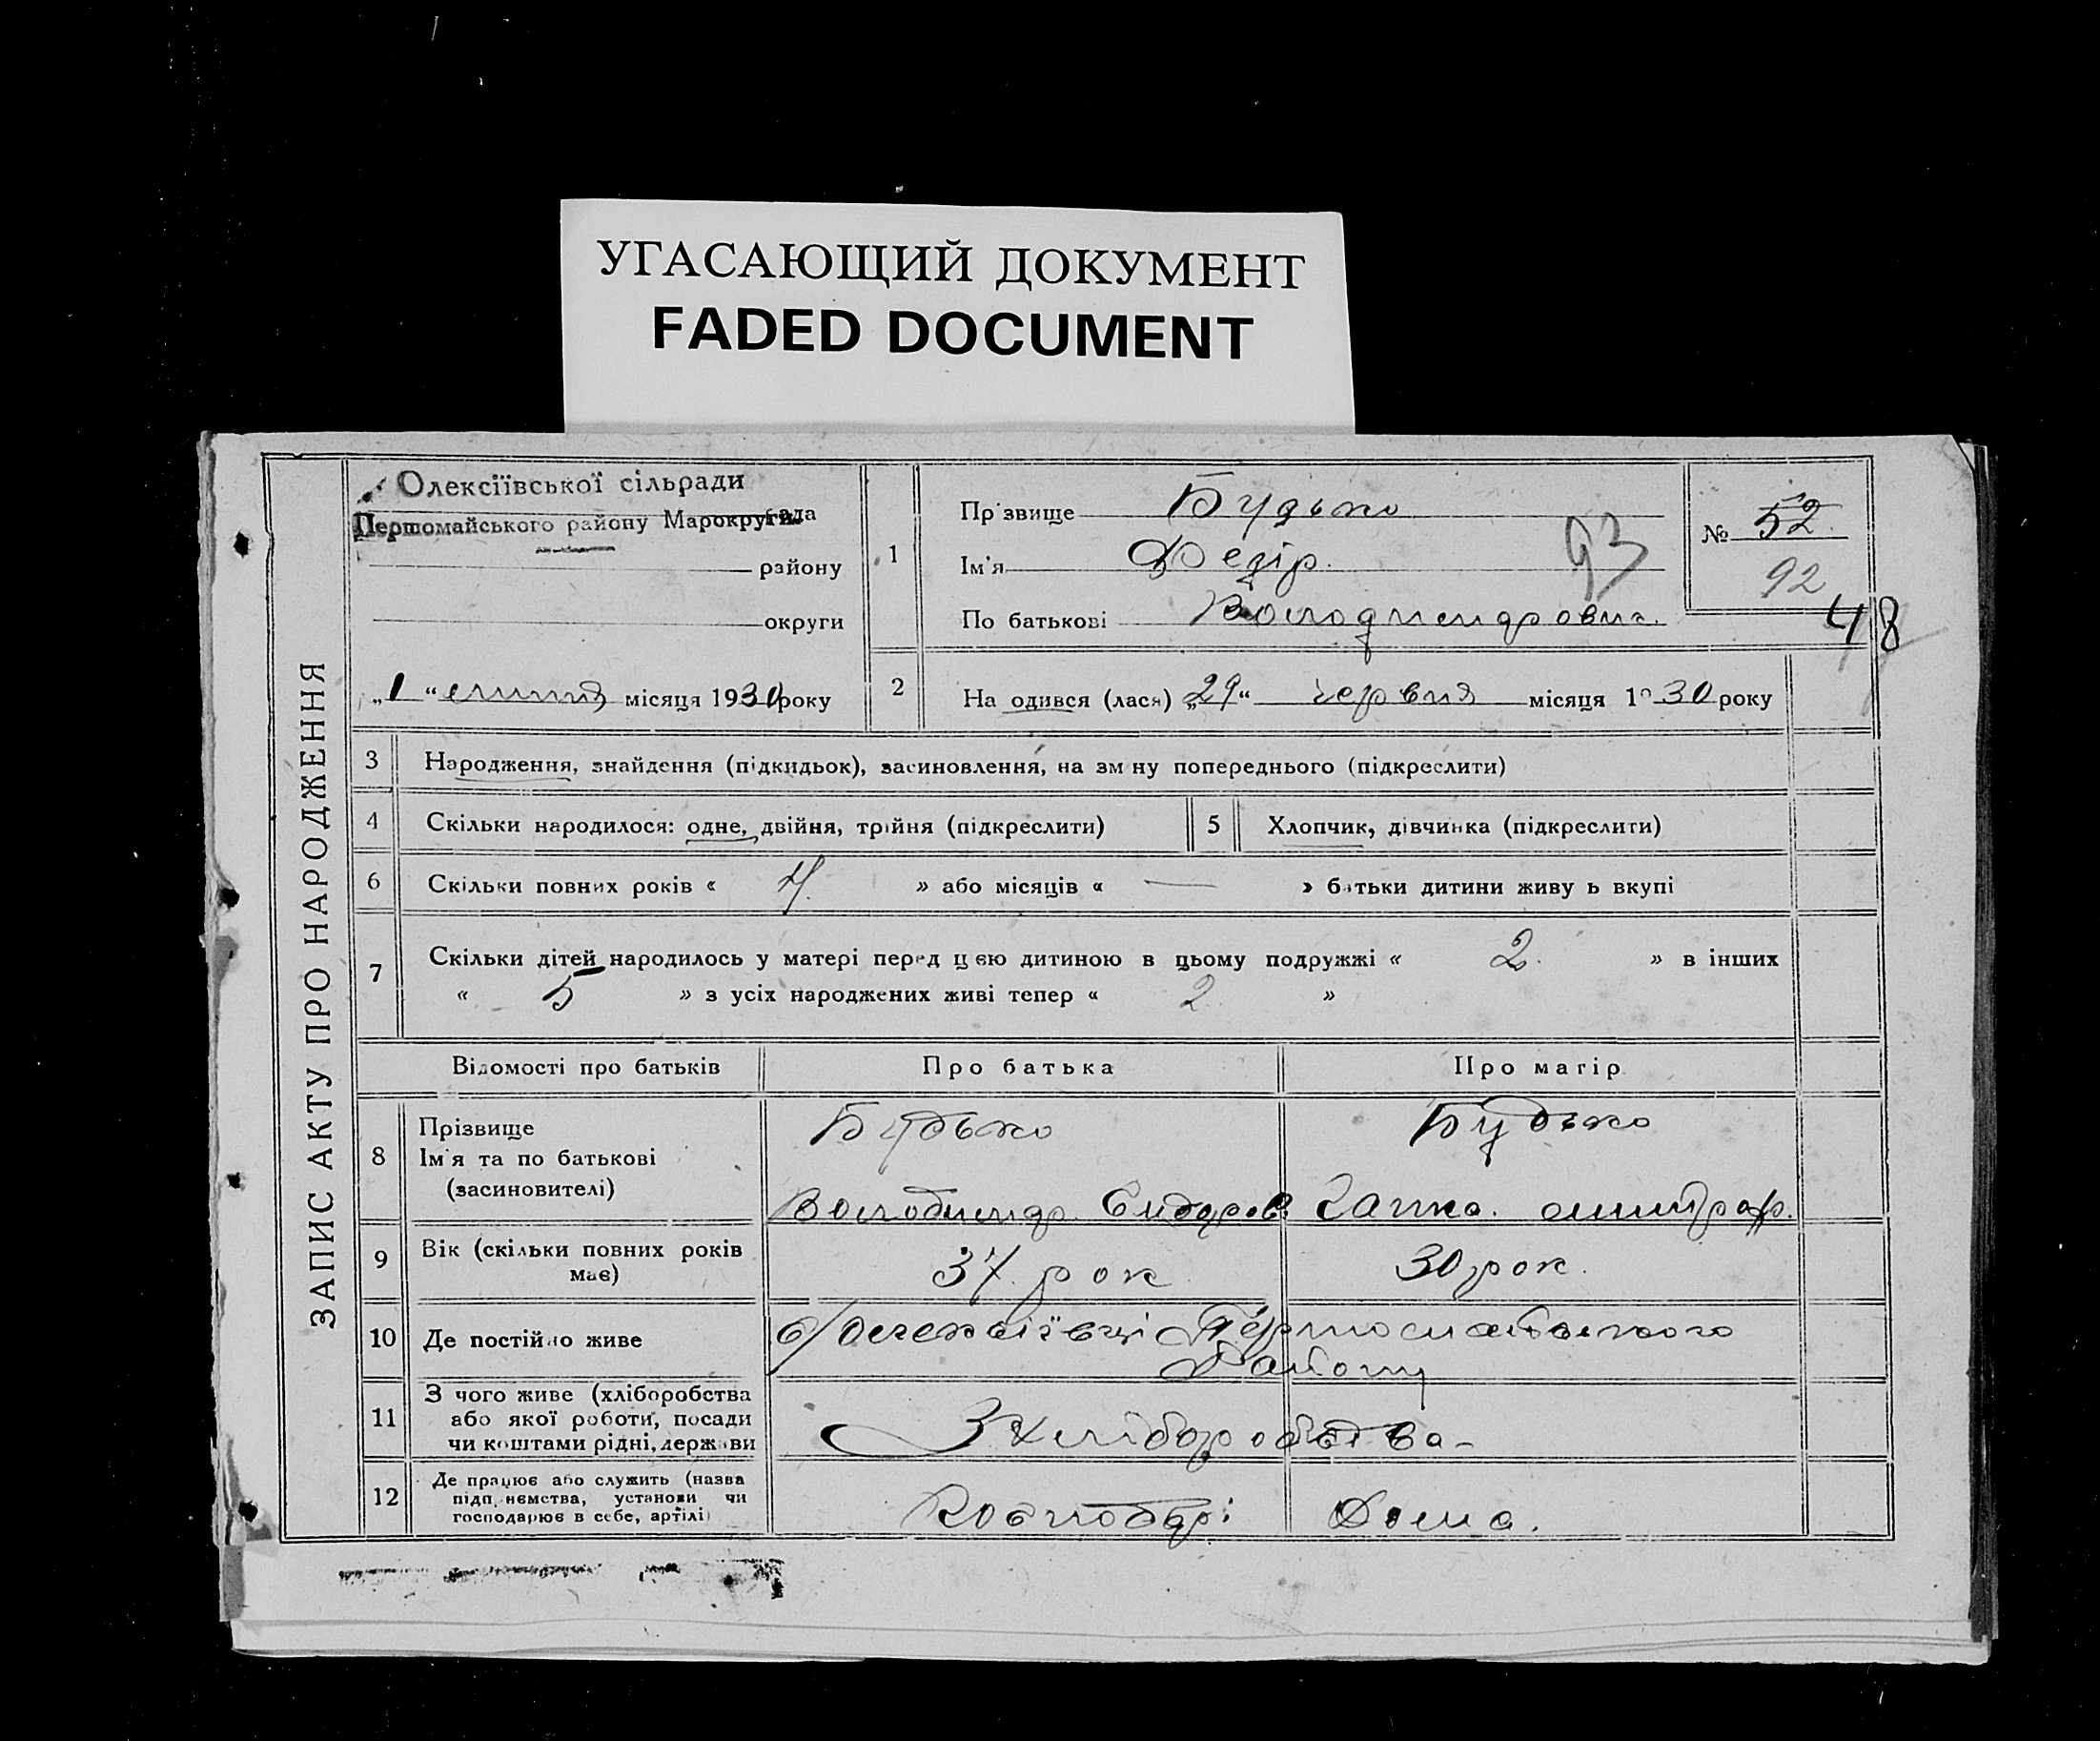 УГАСАЮЩИЙ ДОКУМЕНТ
FADED DOCUMENT
ЗАПИС АКТУ ПРО НАРОДЖЕННЯ
Олексіївської сільради
Першомайського району Марокруги
району
округи
„1“ липня місяця 1930 року
1
Прізвище Будько
Ім'я Федір.
По батькові Володимирович.
№ 52.
93
92
48
2
На одився (лася) „29“ червня місяця 1930 року
3 Народження, знайдення (підкидьок), засиновлення, на зм ну попереднього (підкреслити)
4 Скільки народилося: одне, двійня, трійня (підкреслити)
5 Хлопчик, дівчинка (підкреслити)
6 Скільки повних років « 4. » або місяців « — » батьки дитини живу ь вкупі
7 Скільки дітей народилось у матері перед цією дитиною в цьому подружжі « 2. » в інших
« 5 » з усіх народжених живі тепер « 2 »
Відомості про батьків Про батька Про матір
8 Прізвище
Ім'я та по батькові
(засиновителі)
Будько
Володимир Сидоров
Будько
9 Вік (скільки повних років
має)
37. рок
30 рок.
10 Де постійно живе
в/Олексіївці Першомайського
Району
11 З чого живе (хліборобства
або якої роботи, посади
чи коштами рідні, держави
З хліборобства-
12 Де працює або служить (назва
підп.иємства, установи чи
господарює в себе, артілі)
Дома.